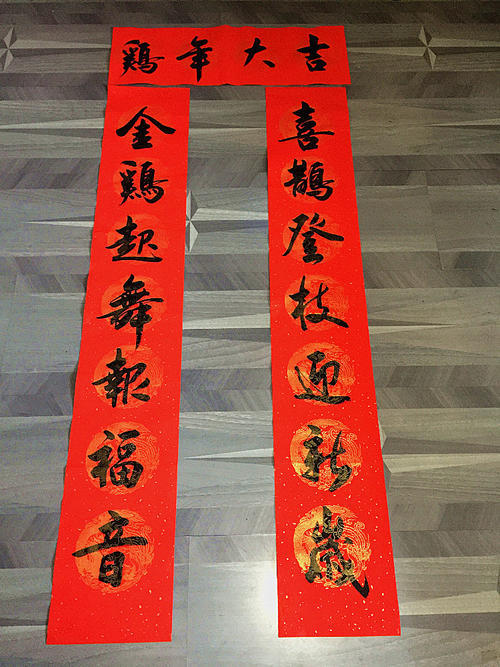 鷄年大吉
金鷄起舞報福音
喜鵲登枝迎新歲